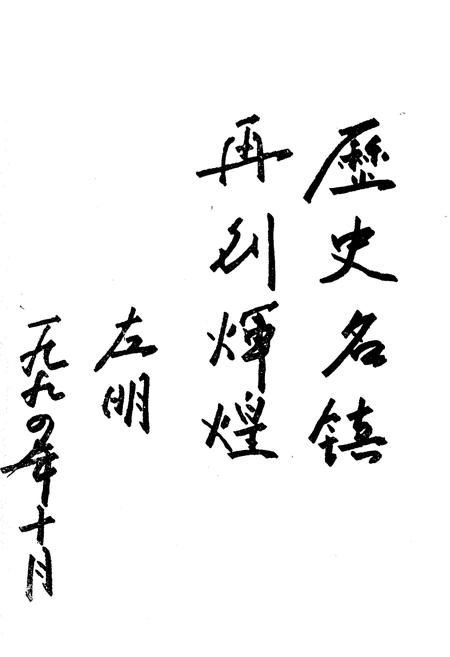 歷史名镇
再创輝煌
左明
一九九四年十月